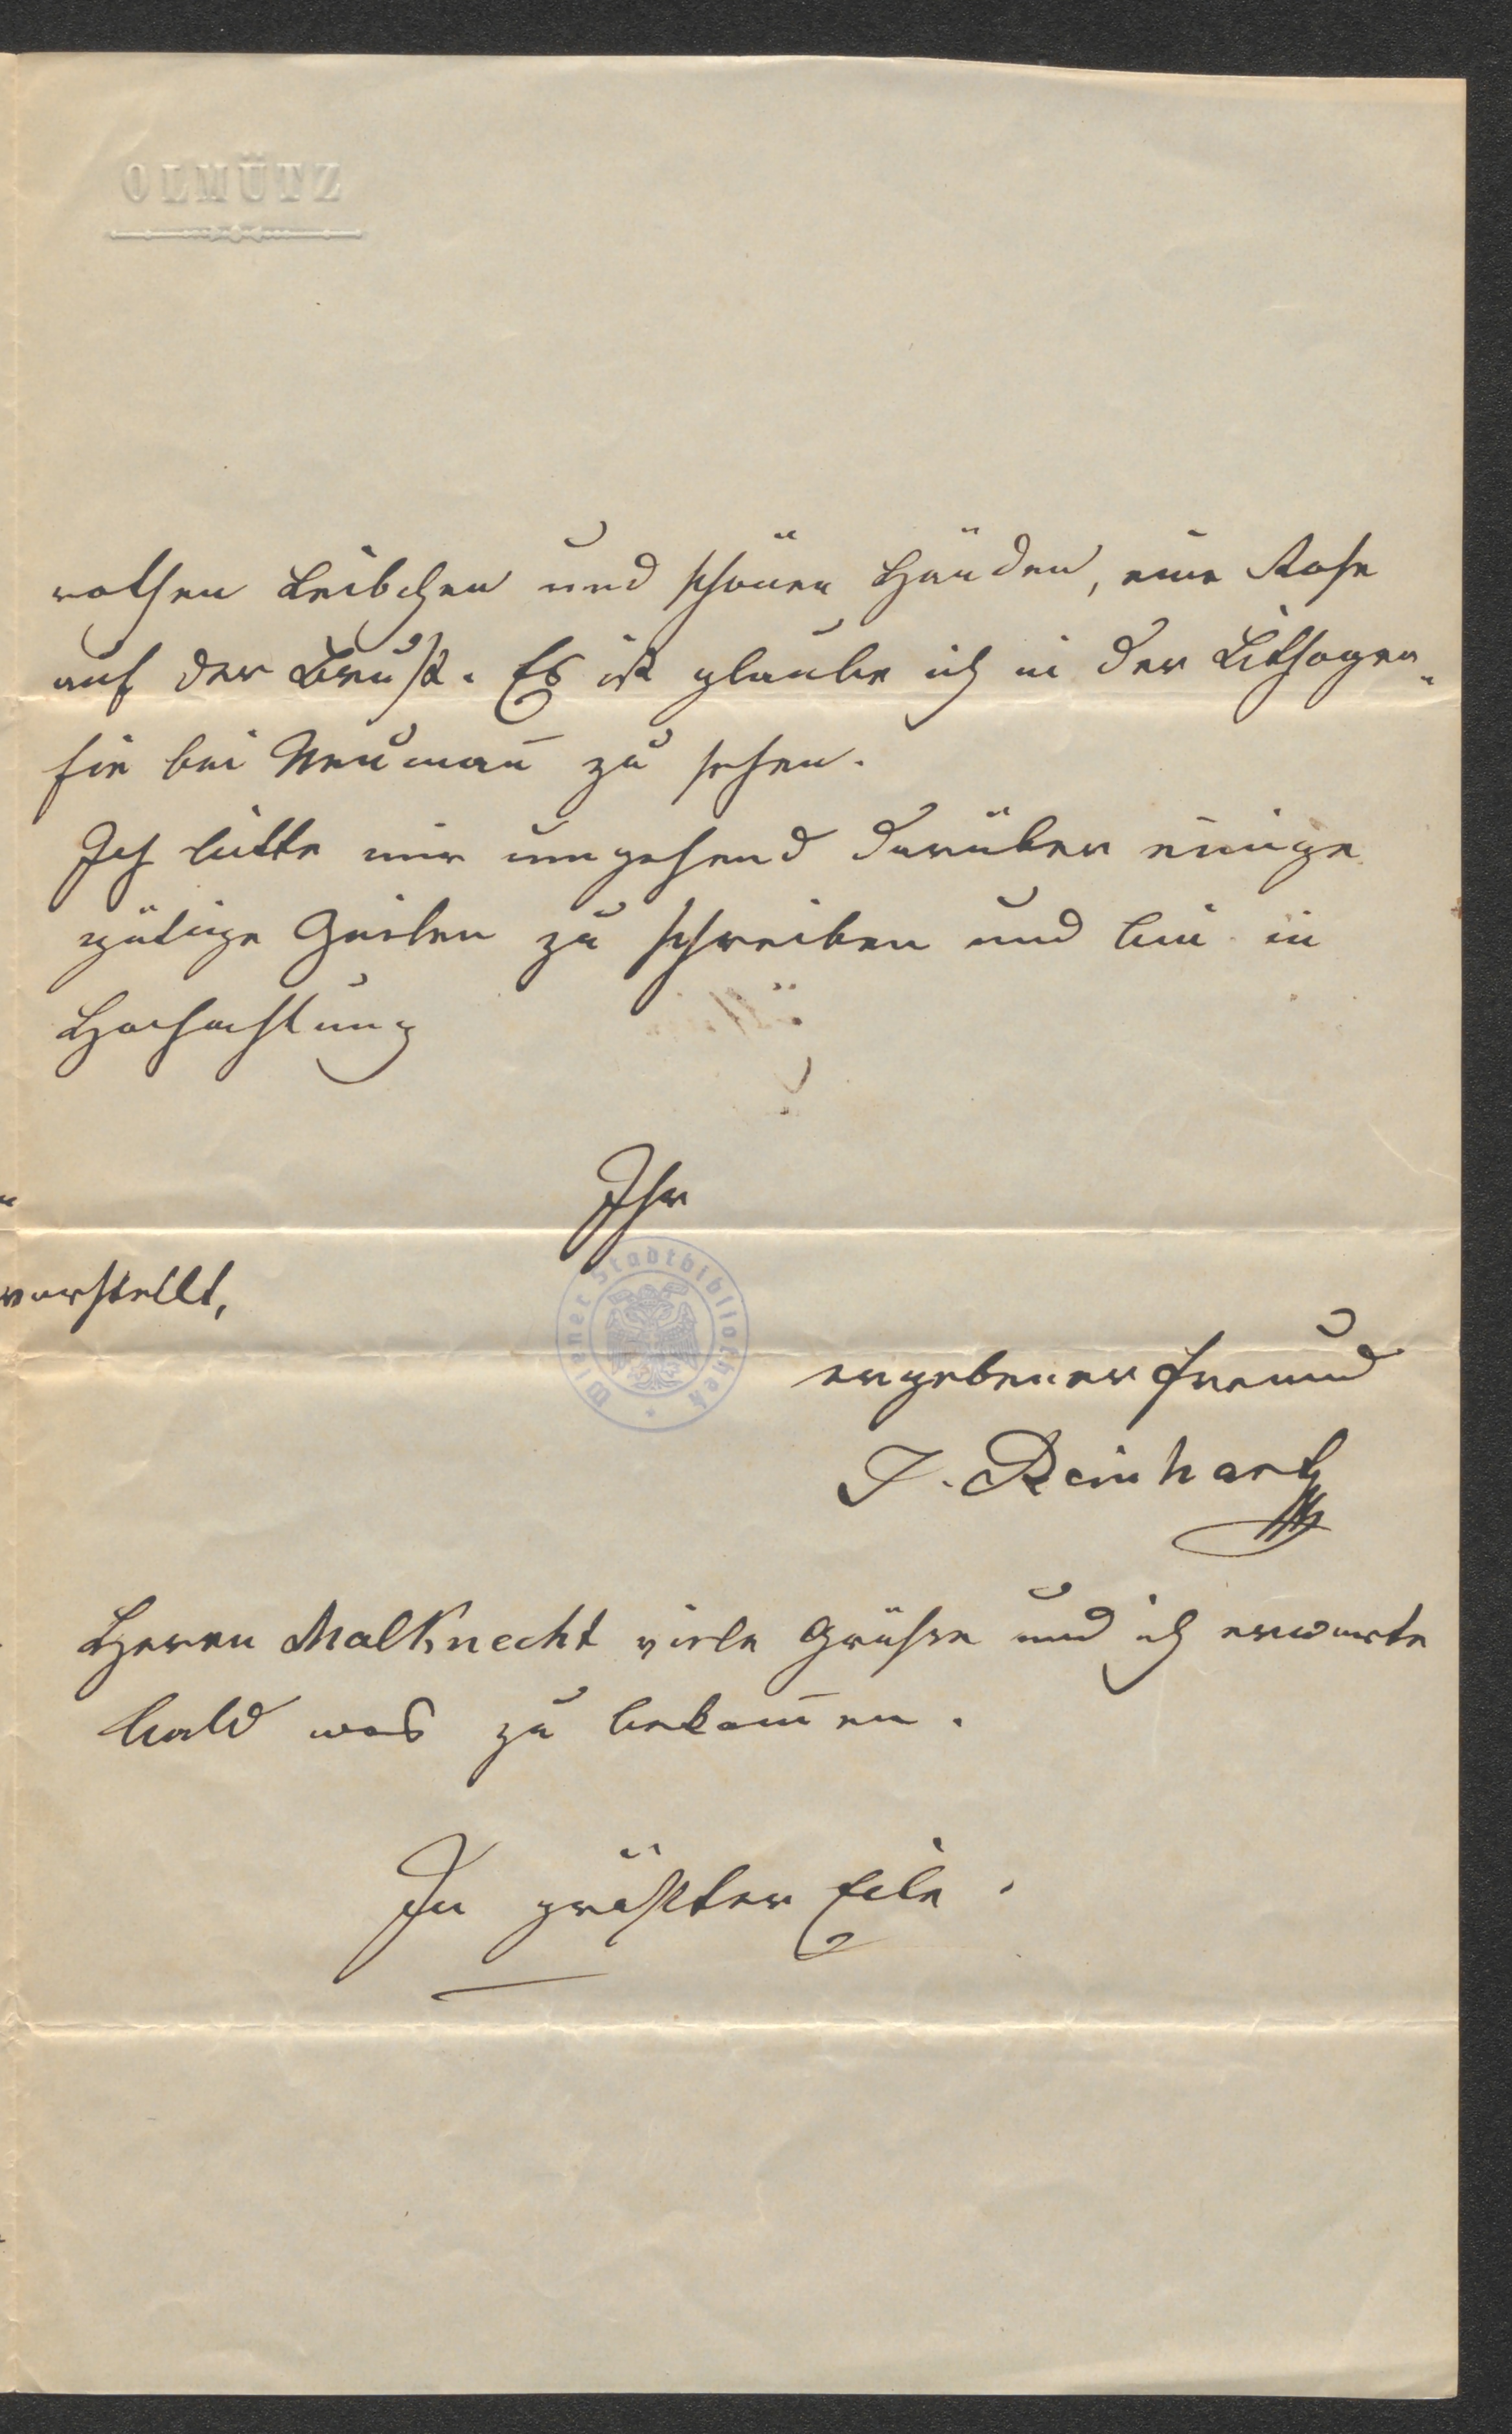 OLMÜTZ
rothen Leibchen und schönen Händen, eine Rose
auf der Brust. Es ist glaube ich in der Lithogra¬
fie bei Neuman̄ zu sehen.
Ich bitte mir umgehend darüber einige
gütige Zeilen zu schreiben und bin in
Hochachtung
Ihr
vorstellt,
Wiener Stadtbibliothek
ergebener Freund
J. Reinhart
Herrn Malknecht viele Grüße und ich erwarte
bald was zu bekom̄en.
In größter Eile.